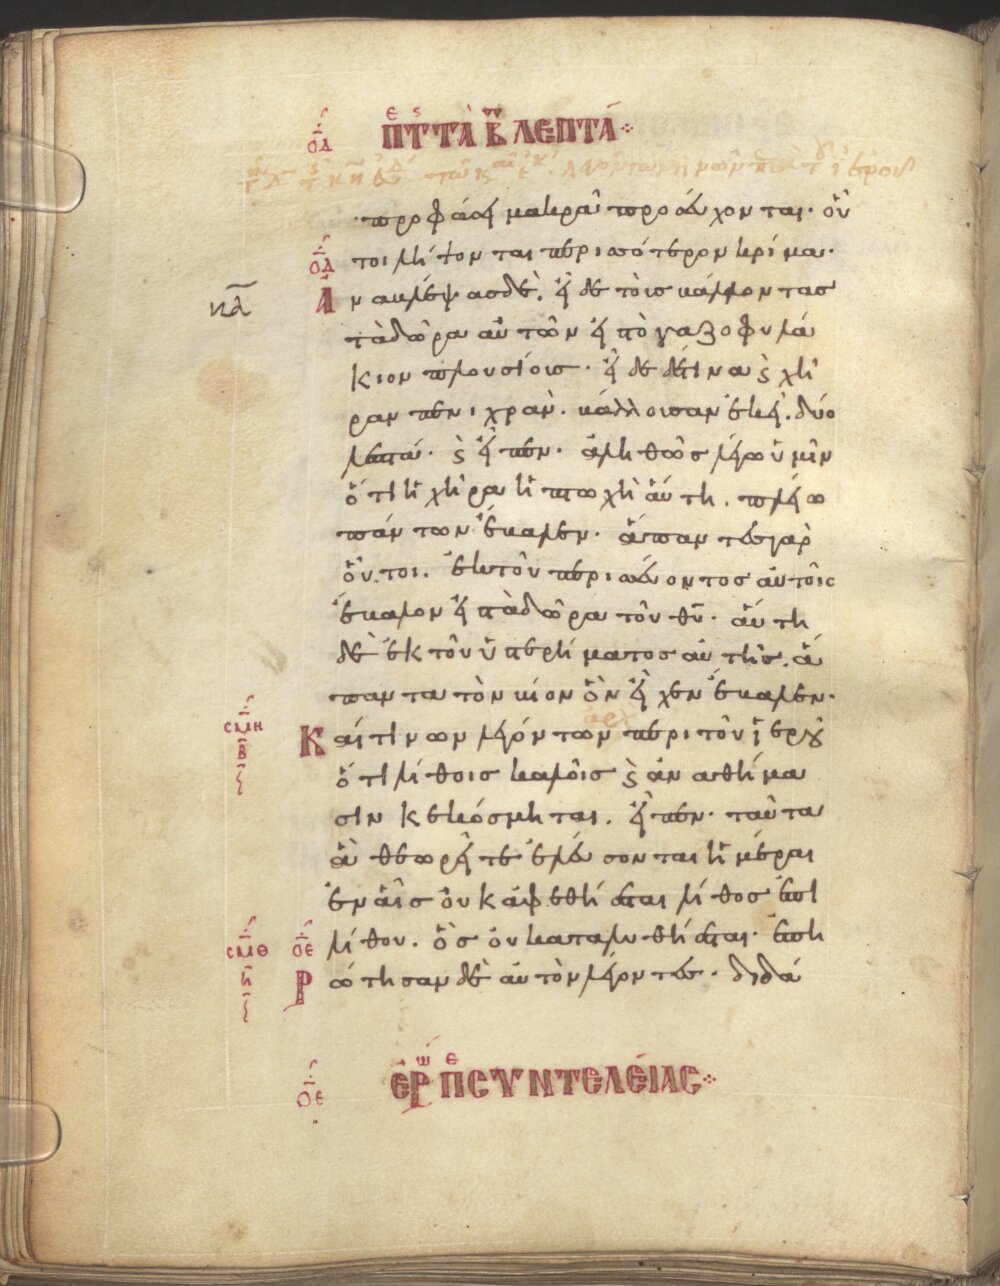 ο̅δ̅ π̅ε̅ρ̅ τ̅ τὰ β̅ λεπτά
προφάσει μακρᾶ προσεύχονται· οὗ
ο̅δ̅ τοι λήψονται περισσότερον κρίμα·
κ̅α̅ Ἀ ναβλέψασ δὲ, εἶδε τοὺσ βάλλοντασ
τὰ δῶρα αὐτῶν εἰς τὸ γαζοφυλά
κιον πλουσίουσ· εἶδε δέ τινα ϗ χή
ραν πενιχραν. βάλλουσαν ἐκεῖ. δύο
λεπτά· ϗ εἶπεν· ἀληθῶσ λέγω ὑμῖν
ὅτι ἡ χήρα ἡ πτωχὴ αὕτη. πλείω
πάντων ἔβαλεν· ἅπαντεσ γὰρ
οὗτοι. ἐκ τοῦ περισσεύοντοσ αὐτοῖσ
ἔβαλον εἰς τὰ δῶρα τοῦ θ̅υ̅· αὕτη
δὲ ἐκ τοῦ ὑστερήματοσ αὐτῆσ. ἅ
παντα τὸν βίον ὃν εἶχεν ἔβαλεν·
ἀρχ
σ̅μ̅η̅ β̅ Κ αί τινων λεγόντων περὶ τοῦ ἱεροῦ
ὅτι λίθοισ καλοῖσ ϗ ἀναθήμα
σιν κεκόσμηται. εἶπεν· ταῦτα
ἃ θεωρεῖτε ἐλεύσονται ἡμέραι
ἐν αἷσ οὐκ ἀφεθήσεται λίθοσ ἐπὶ
σ̅μ̅θ̅ ο̅ε̅ λίθον. ὃσ οὐ καταλυθήσεται· ἐπη
η̅ Ρ ώτησαν δὲ αὐτὸν λέγοντεσ· διδά
ο̅ε̅ ἐρω πε συντελείας